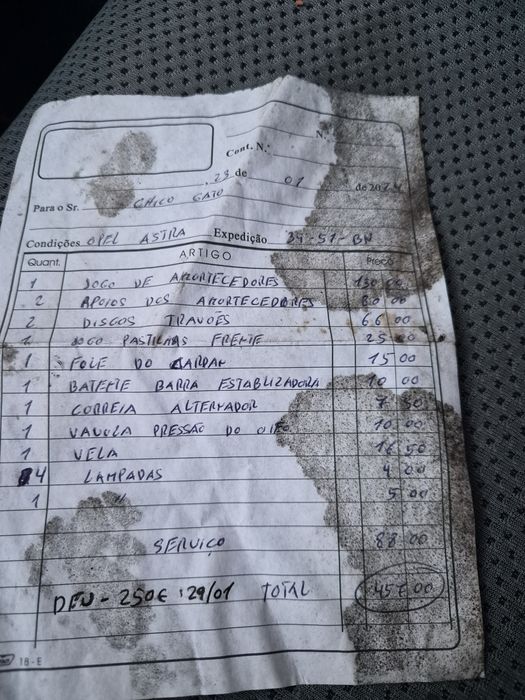 N.º
Cont. N.º
, 29 de 01 de 202
Para o Sr. CHICO GATO
Condições OPEL ASTRA Expedição 34-51-BN
Quant. ARTIGO Preço
1 JOGO DE AMORTECEDORES 130 00
2 APOIOS DOS AMORTECEDORES 80 00
2 DISCOS TRAVÕES 66 00
1 JOGO PASTILHAS FRENTE 25 00
1 FOLE DO CARDAN 15 00
1 BATENTE BARRA ESTABLIZADORA 10 00
1 CORREIA ALTERNADOR 7 50
1 VAVULA PRESSÃO DO OLEO 10.00
1 VELA 16 50
4 LAMPADAS 4 00
1 " 5 00
SERVIÇO 88.00
DEU - 250€ :29/01 TOTAL 457.00
18-E